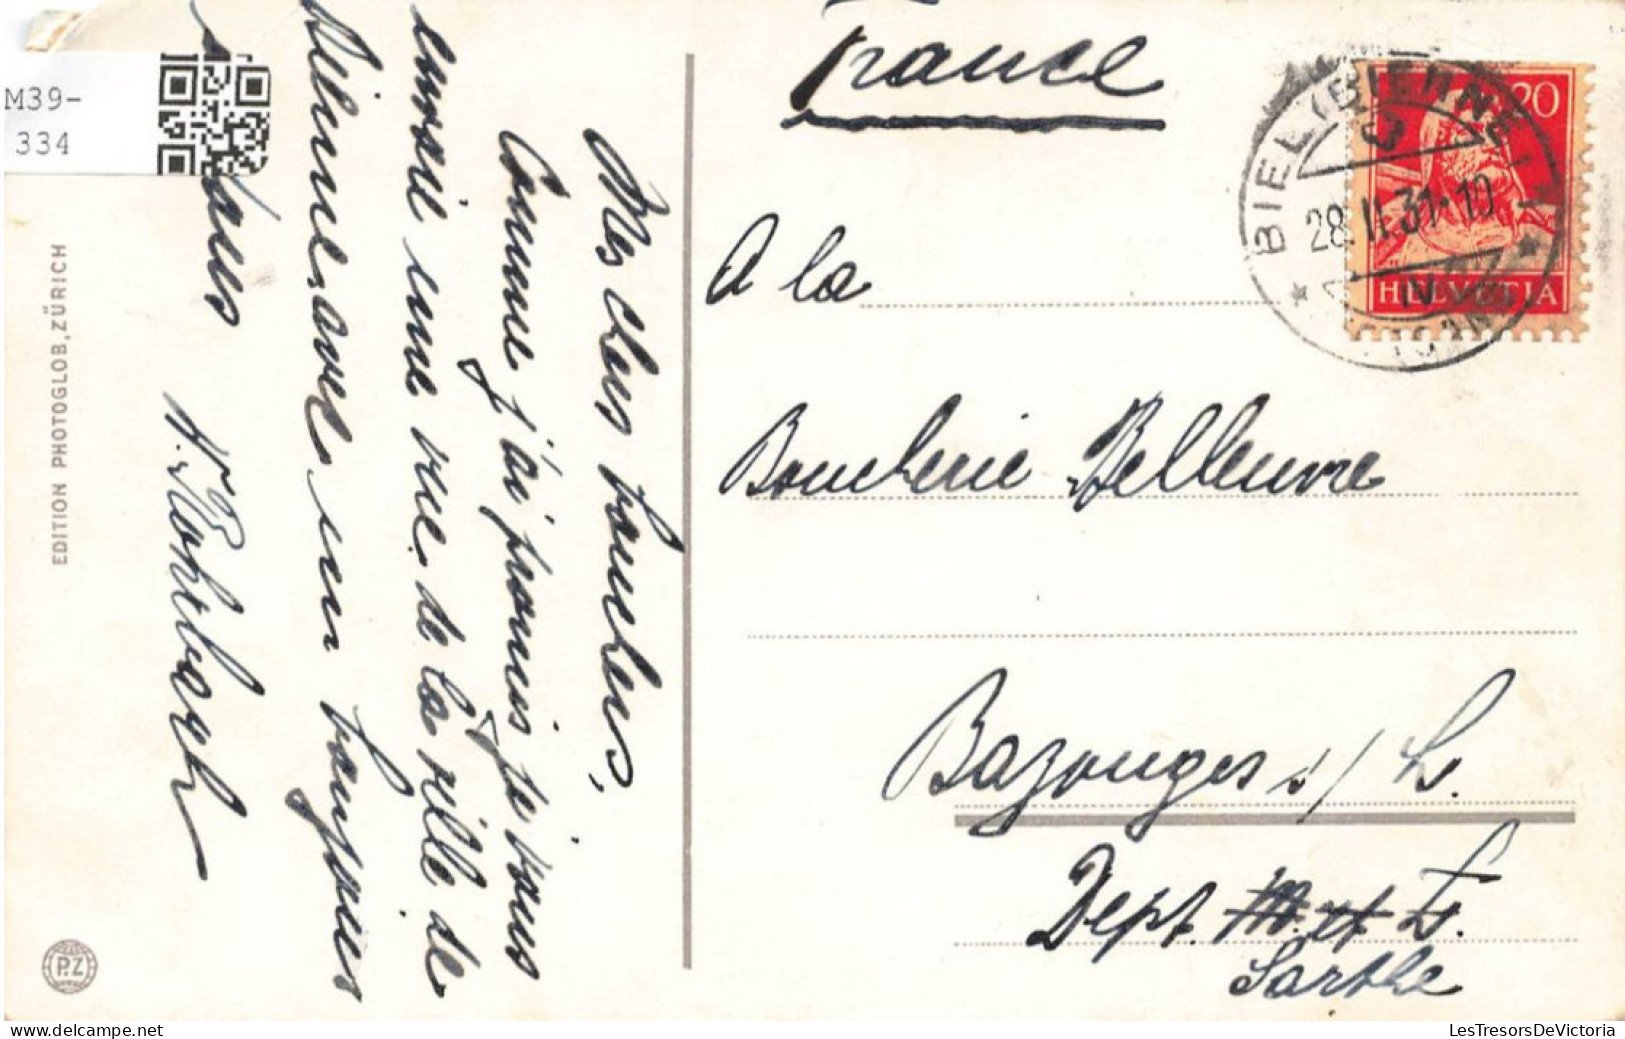 M39-
334
EDITION PHOTOGLOB, ZÜRICH
P.Z
Mes chers bouchers,
Comme j'ai promis je vous
envoie une vue de la ville de
Bienne, avec
salues
Rohrbach
France
20
HELVETIA
BIEL (BIENNE)
28.II.31-10
A la
Boucherie Bellevue
Bazouges s/ L.
Dept. M. et L.
Sarthe
LesTresorsDeVictoria.com